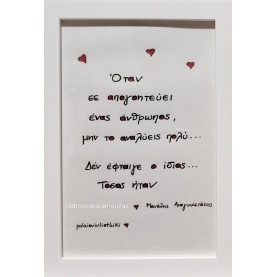 Όταν
σε απογοητεύει
ένας άνθρωπος,
μην το αναλύεις πολύ...
Δεν έφταιγε ο ίδιος...
Τόσος ήταν
Μανώλης Αναγνωστάκης
palaiovivliotiki